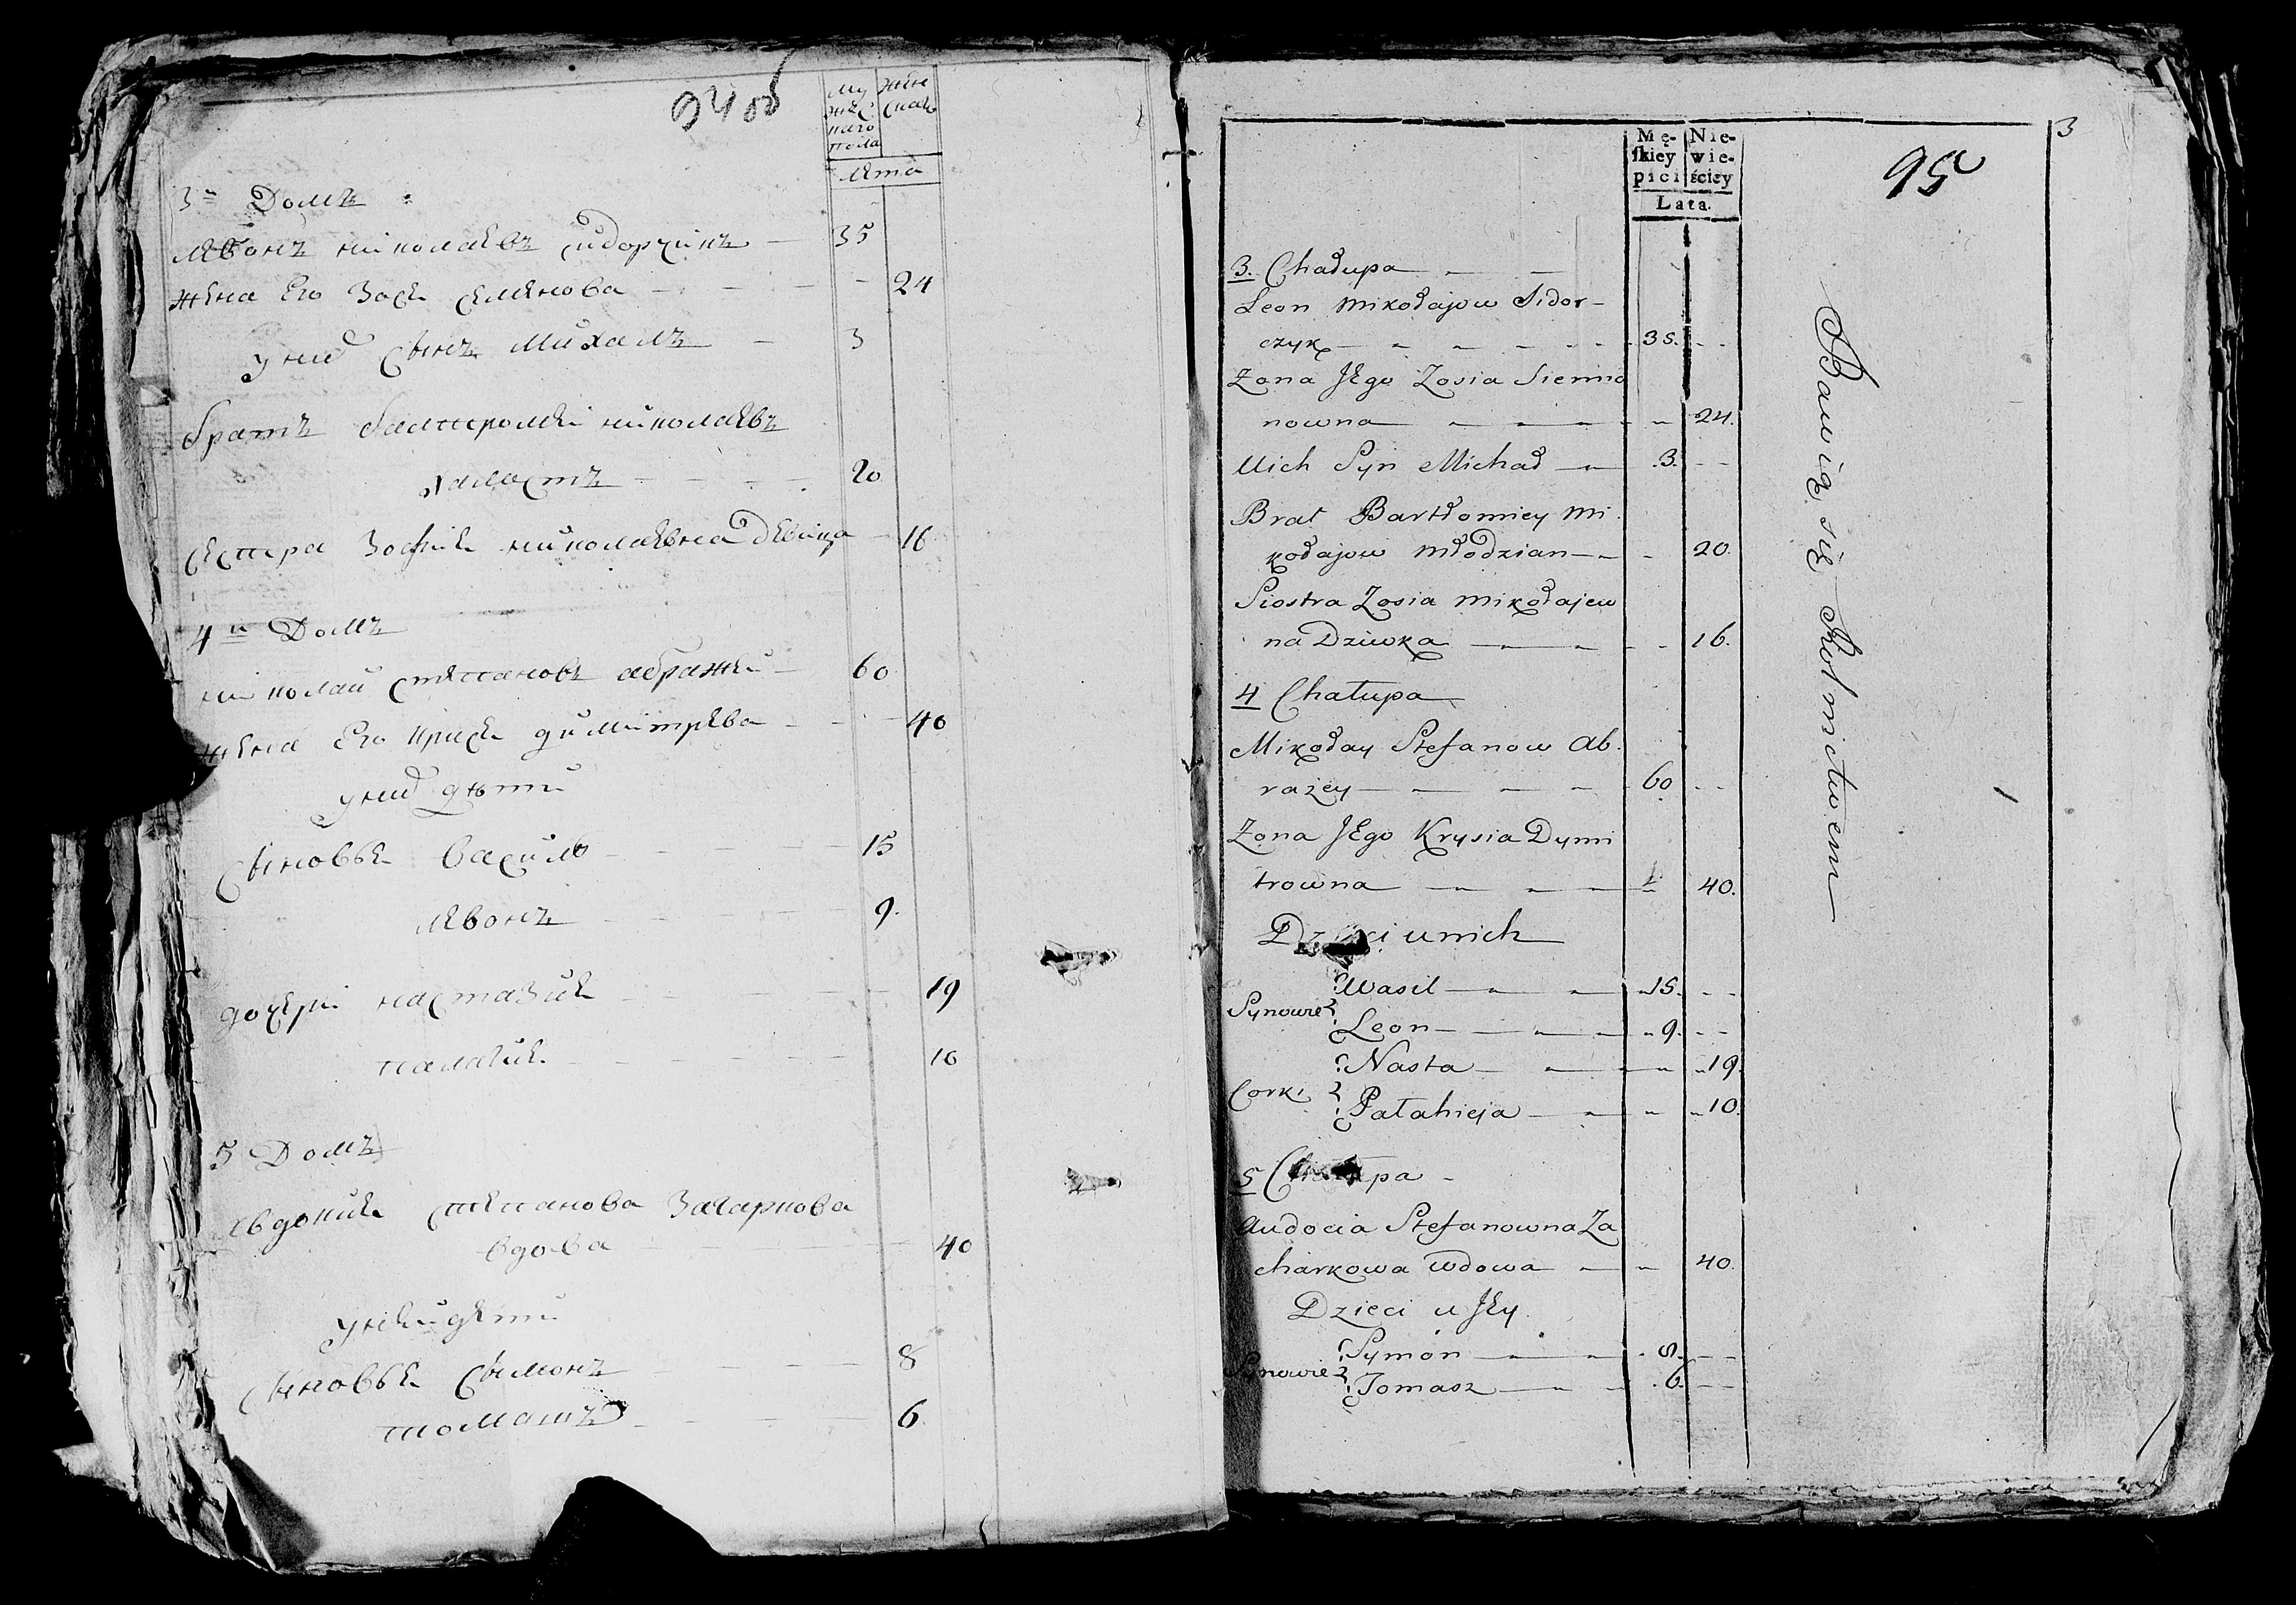 94 об
Му
жес
каго
пола
Жен
скаго
Лета
3й Домъ
Левонъ николаевъ сидорчикъ 35
жена Его Зося семенова 24
у них сынъ михалъ 3
братъ балтромей николаевъ
халастъ 20
сестра Зофия николаевна девица 16
4й Домъ
николай степановъ абражей 60
жена Его крися димитрева 40
у них дети
сыновье василь 15
левонъ 9
дочери настазия 19
палагия 10
5 Домъ
евдокия степанова Захаркова
вдова 40
у ней дети
сыновье сымонъ 8
томашъ 6
3
95
Mę-
skiey
płci
Nie-
wie-
ściey
Lata.
3. Chałupa
Leon Mikołajow Sidor-
czyk 35.
Zona JEgo Zosia Siemio
nowna 24.
Uich Syn Michał 3.
Brat Bartłomiey Mi
kołajow Młodzian 20.
Siostra Zosia Mikołajew
na Dziwka 16.
4 Chałupa
Mikołay Stefanow Ab.
razey 60
Zona JEgo Krysia Dymi
trowna 40.
Dzieci u nich
Synowie Wasil 15.
Leon 9.
Corki Nasta 19.
Pałahieja 10.
5 Chałupa
Audocia Stefanowna Za
charkowa Wdowa 40.
Dzieci u Jey.
Synowie Symon 8.
Tomasz 6.
Bawią się Rolnictwem